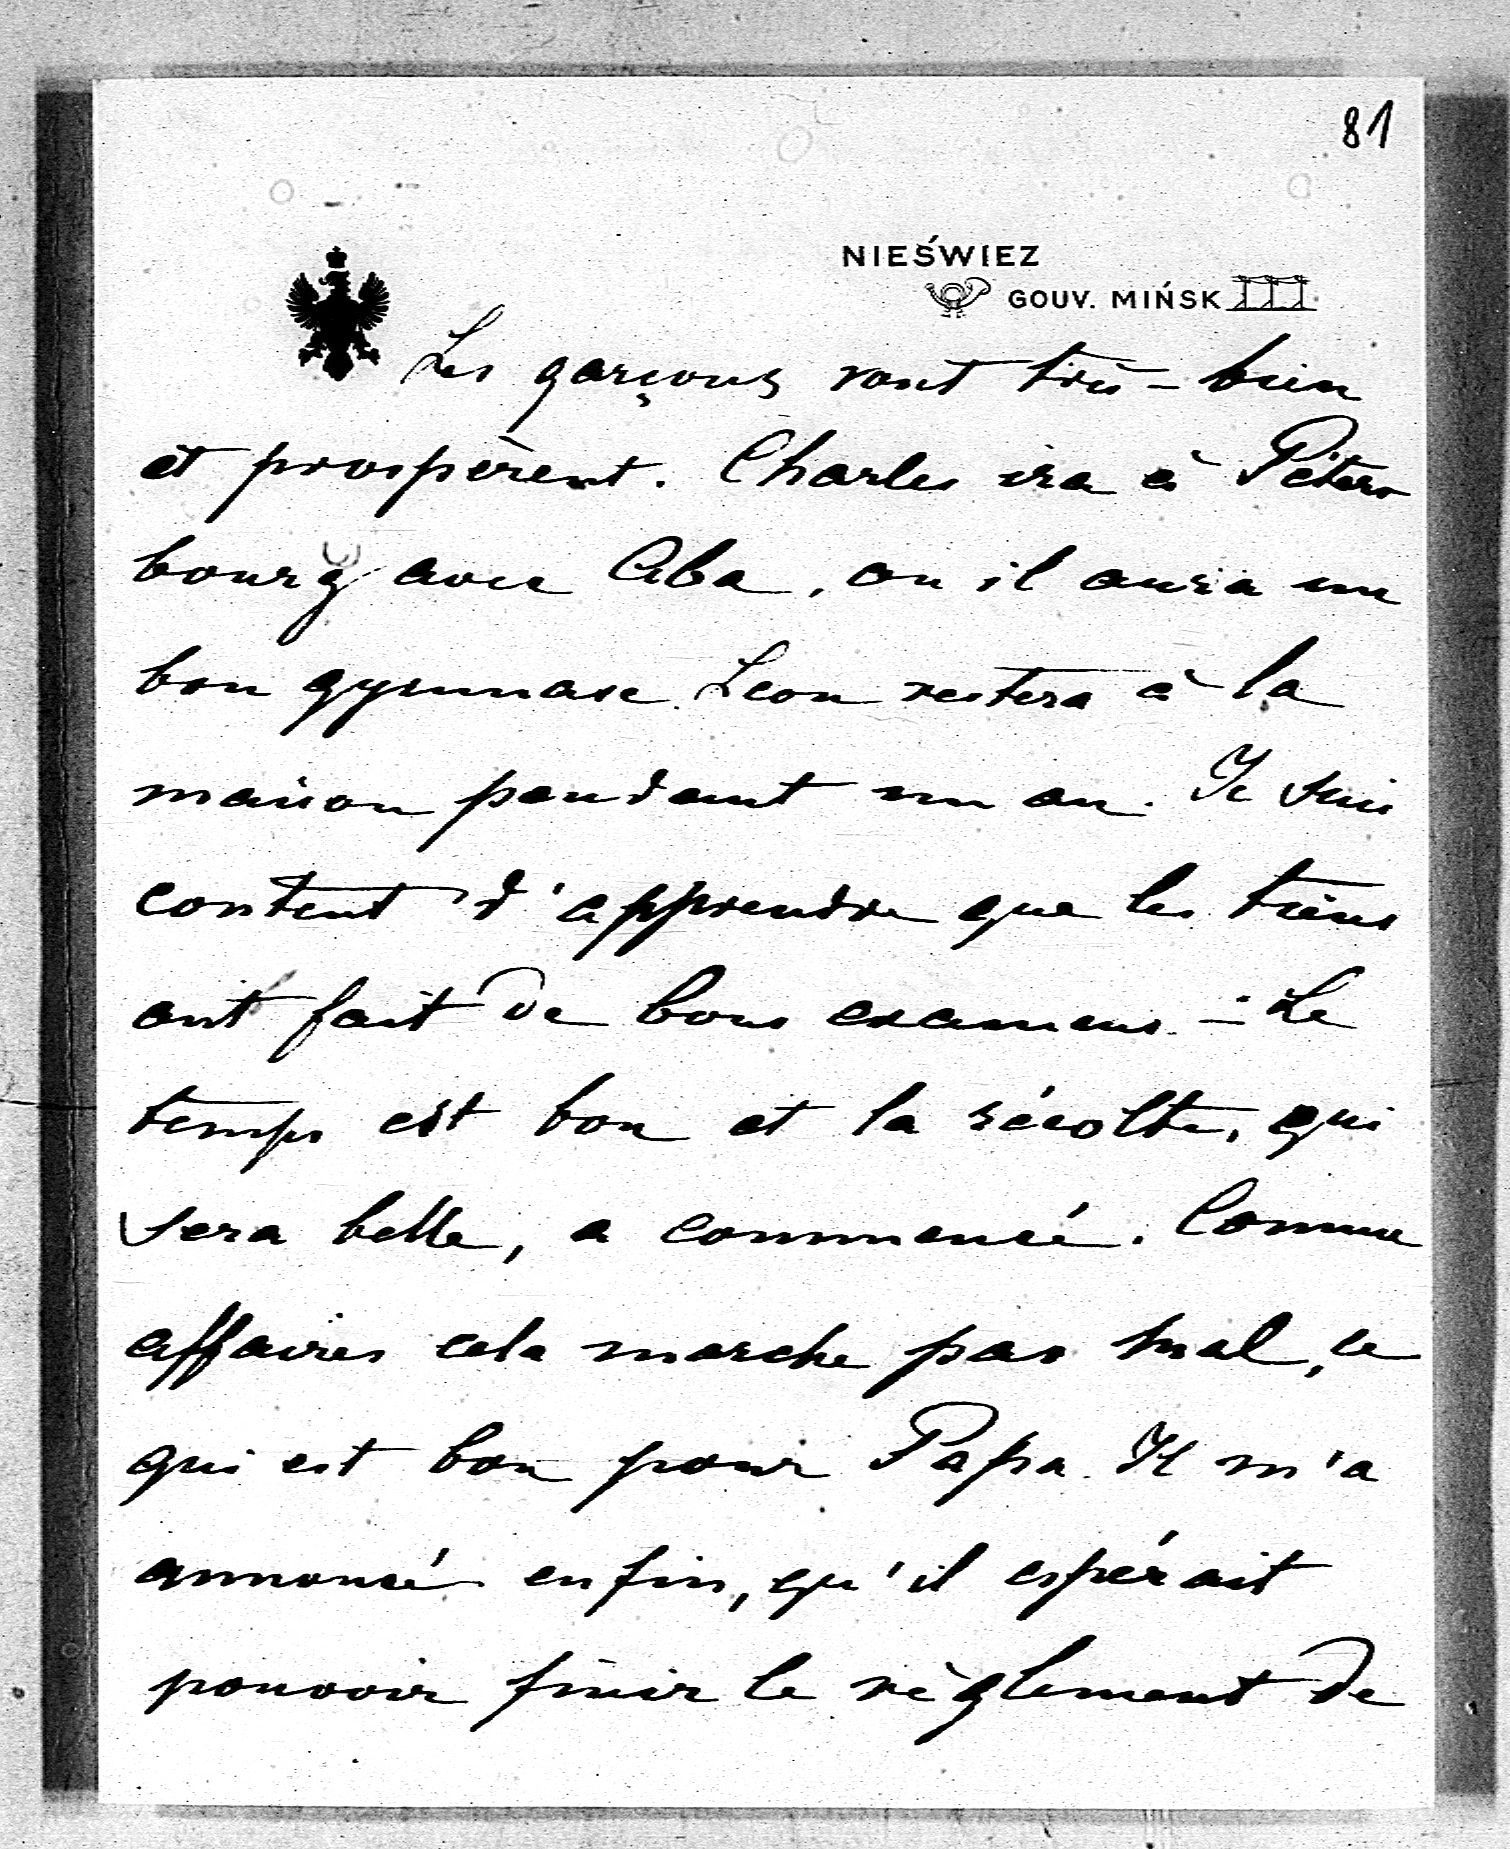 81
NIEŚWIEZ
GOUV. MIŃSK
Les garçons vont très-bien
et prospèrent. Charles ira à Péters
bourg avec Aba, ou il aura un
bon gymnase. Leon restera à la
maison pendant un an. Je suis
content d'apprendre que les tiens
ont fait de bons examens. - Le
temps est bon et la récolte, qui
sera belle, a commencé. Comme
affaires cela marche pas mal, ce
qui est bon pour Papa. Il m'a
annoncé enfin, qu'il espérait
pouvoir finir le règlement de